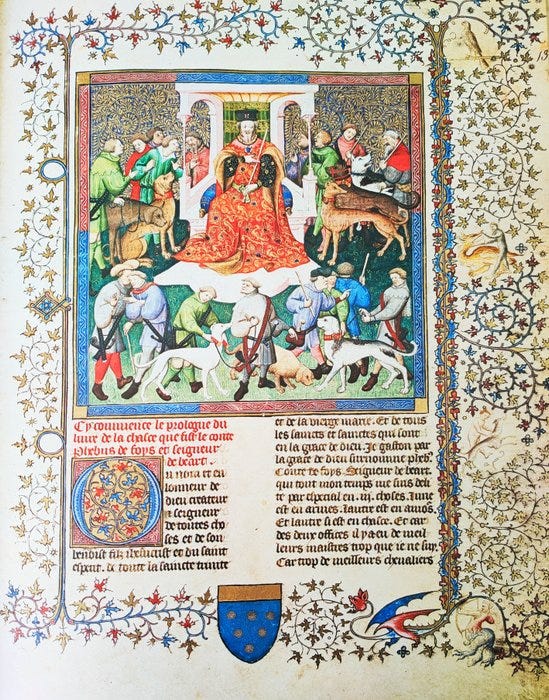 Cy commence le prologue du
liure de la chasce que fist le conte
Phebus de foys et seigneur
de beart.
Ou nom et en
lonneur de
dieu createur
et seigneur
de toutes cho
ses et de son
benoist filz Jhesucrist et du saint
esperit. de toute la saincte trinite
et de la vierge marie. Et de tous
les saincts et sainctes qui sont
en la grace de dieu. Je gaston par
la grace de dieu surnomme pheb9.
Conte de foys. Seigneur de beart.
qui tout mon temps me suis deli
te par especial en .iii. choses. lune
est en armes. lautre est en amors.
Et lautre si est en chasce. Et car
des deux offices il ya eu de meil
leurs maistres trop que ie ne suy.
Car trop de meilleurs cheualiers